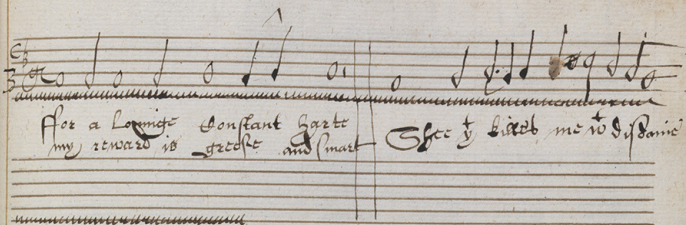 ffor a Lovinge Constant harte
my reward is greefe and smart
Shee yt killes me wt disdaine